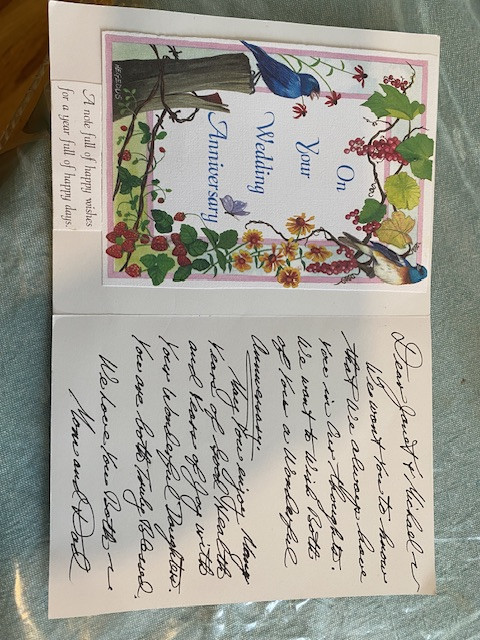 On
Your
Wedding
Anniversary
HEGEDUS
A note full of happy wishes
for a year full of happy days.
Dear Janet & Michael ~
We want you to know
that we always have
you in Our thoughts.
We want to Wish Both
of you a Wonderful
Anniversary.
May You enjoy Many
Years of Good Health
and Years of Joy with
Your Wonderful Daughter.
You are both Truly Blessed.
We love You Both ~
Mom and Dad